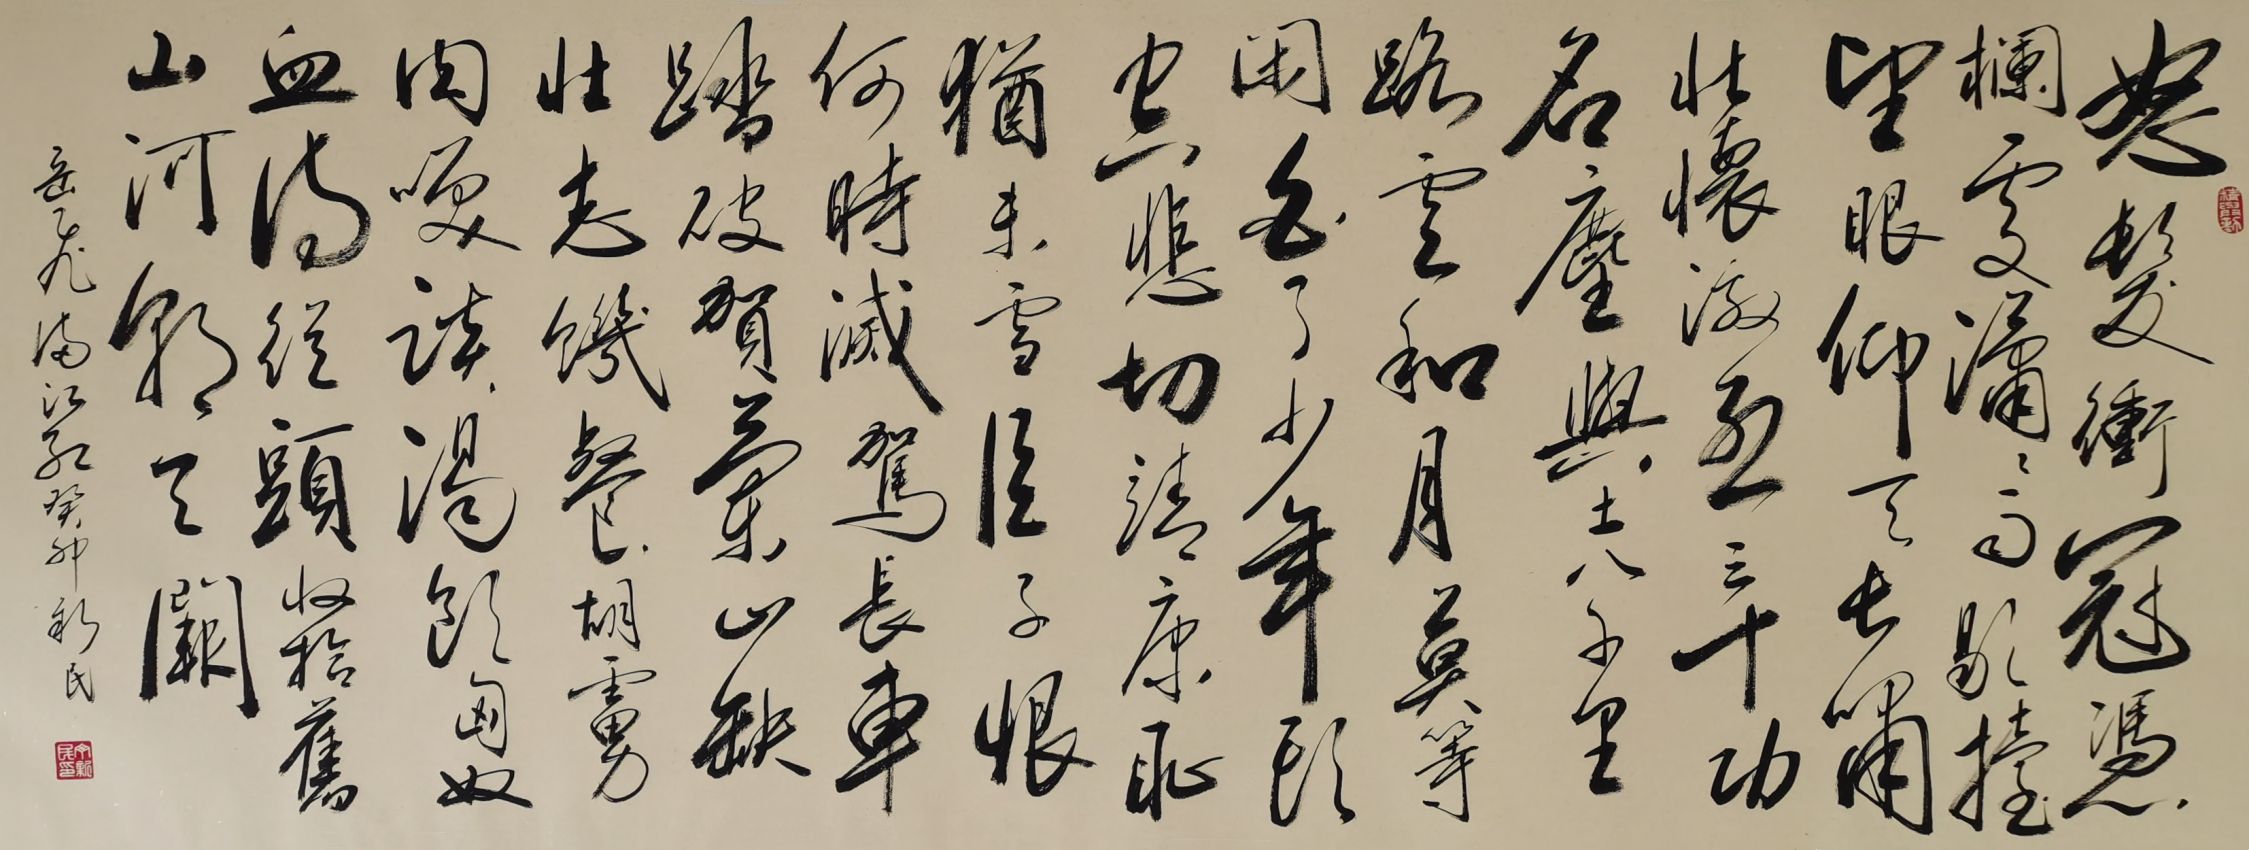 怒髮衝冠憑
欄處瀟〻雨歇擡
望眼仰天長嘯
壯懷激烈三十功
名塵與土八千里
路雲和月莫等
閑白了少年頭
空悲切靖康恥
猶未雪臣子恨
何時滅駕長車
踏破賀蘭山缺
壯志饑餐胡虜
肉笑談渴飲匈奴
血待從頭收拾舊
山河朝天闕
岳飛滿江紅癸卯新民